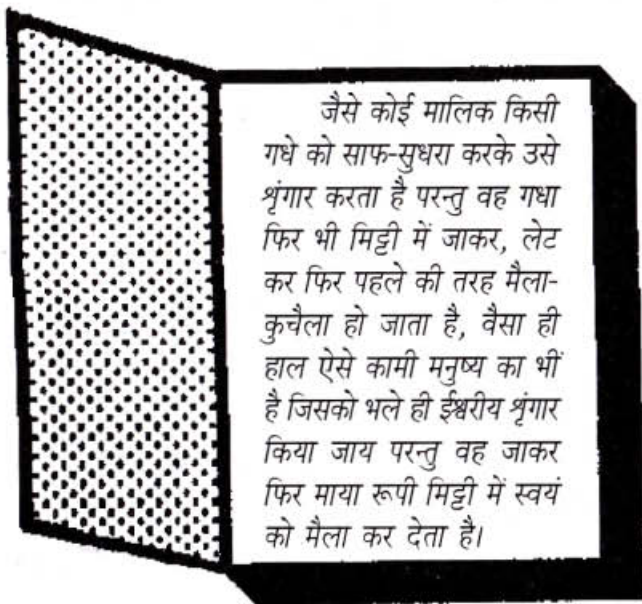 जैसे कोई मालिक किसी
गधे को साफ-सुथरा करके उसे
शृंगार करता है परन्तु वह गधा
फिर भी मिट्टी में जाकर, लेट
कर फिर पहले की तरह मैला-
कुचैला हो जाता है, वैसा ही
हाल ऐसे कामी मनुष्य का भी
है जिसको भले ही ईश्वरीय शृंगार
किया जाय परन्तु वह जाकर
फिर माया रूपी मिट्टी में स्वयं
को मैला कर देता है।